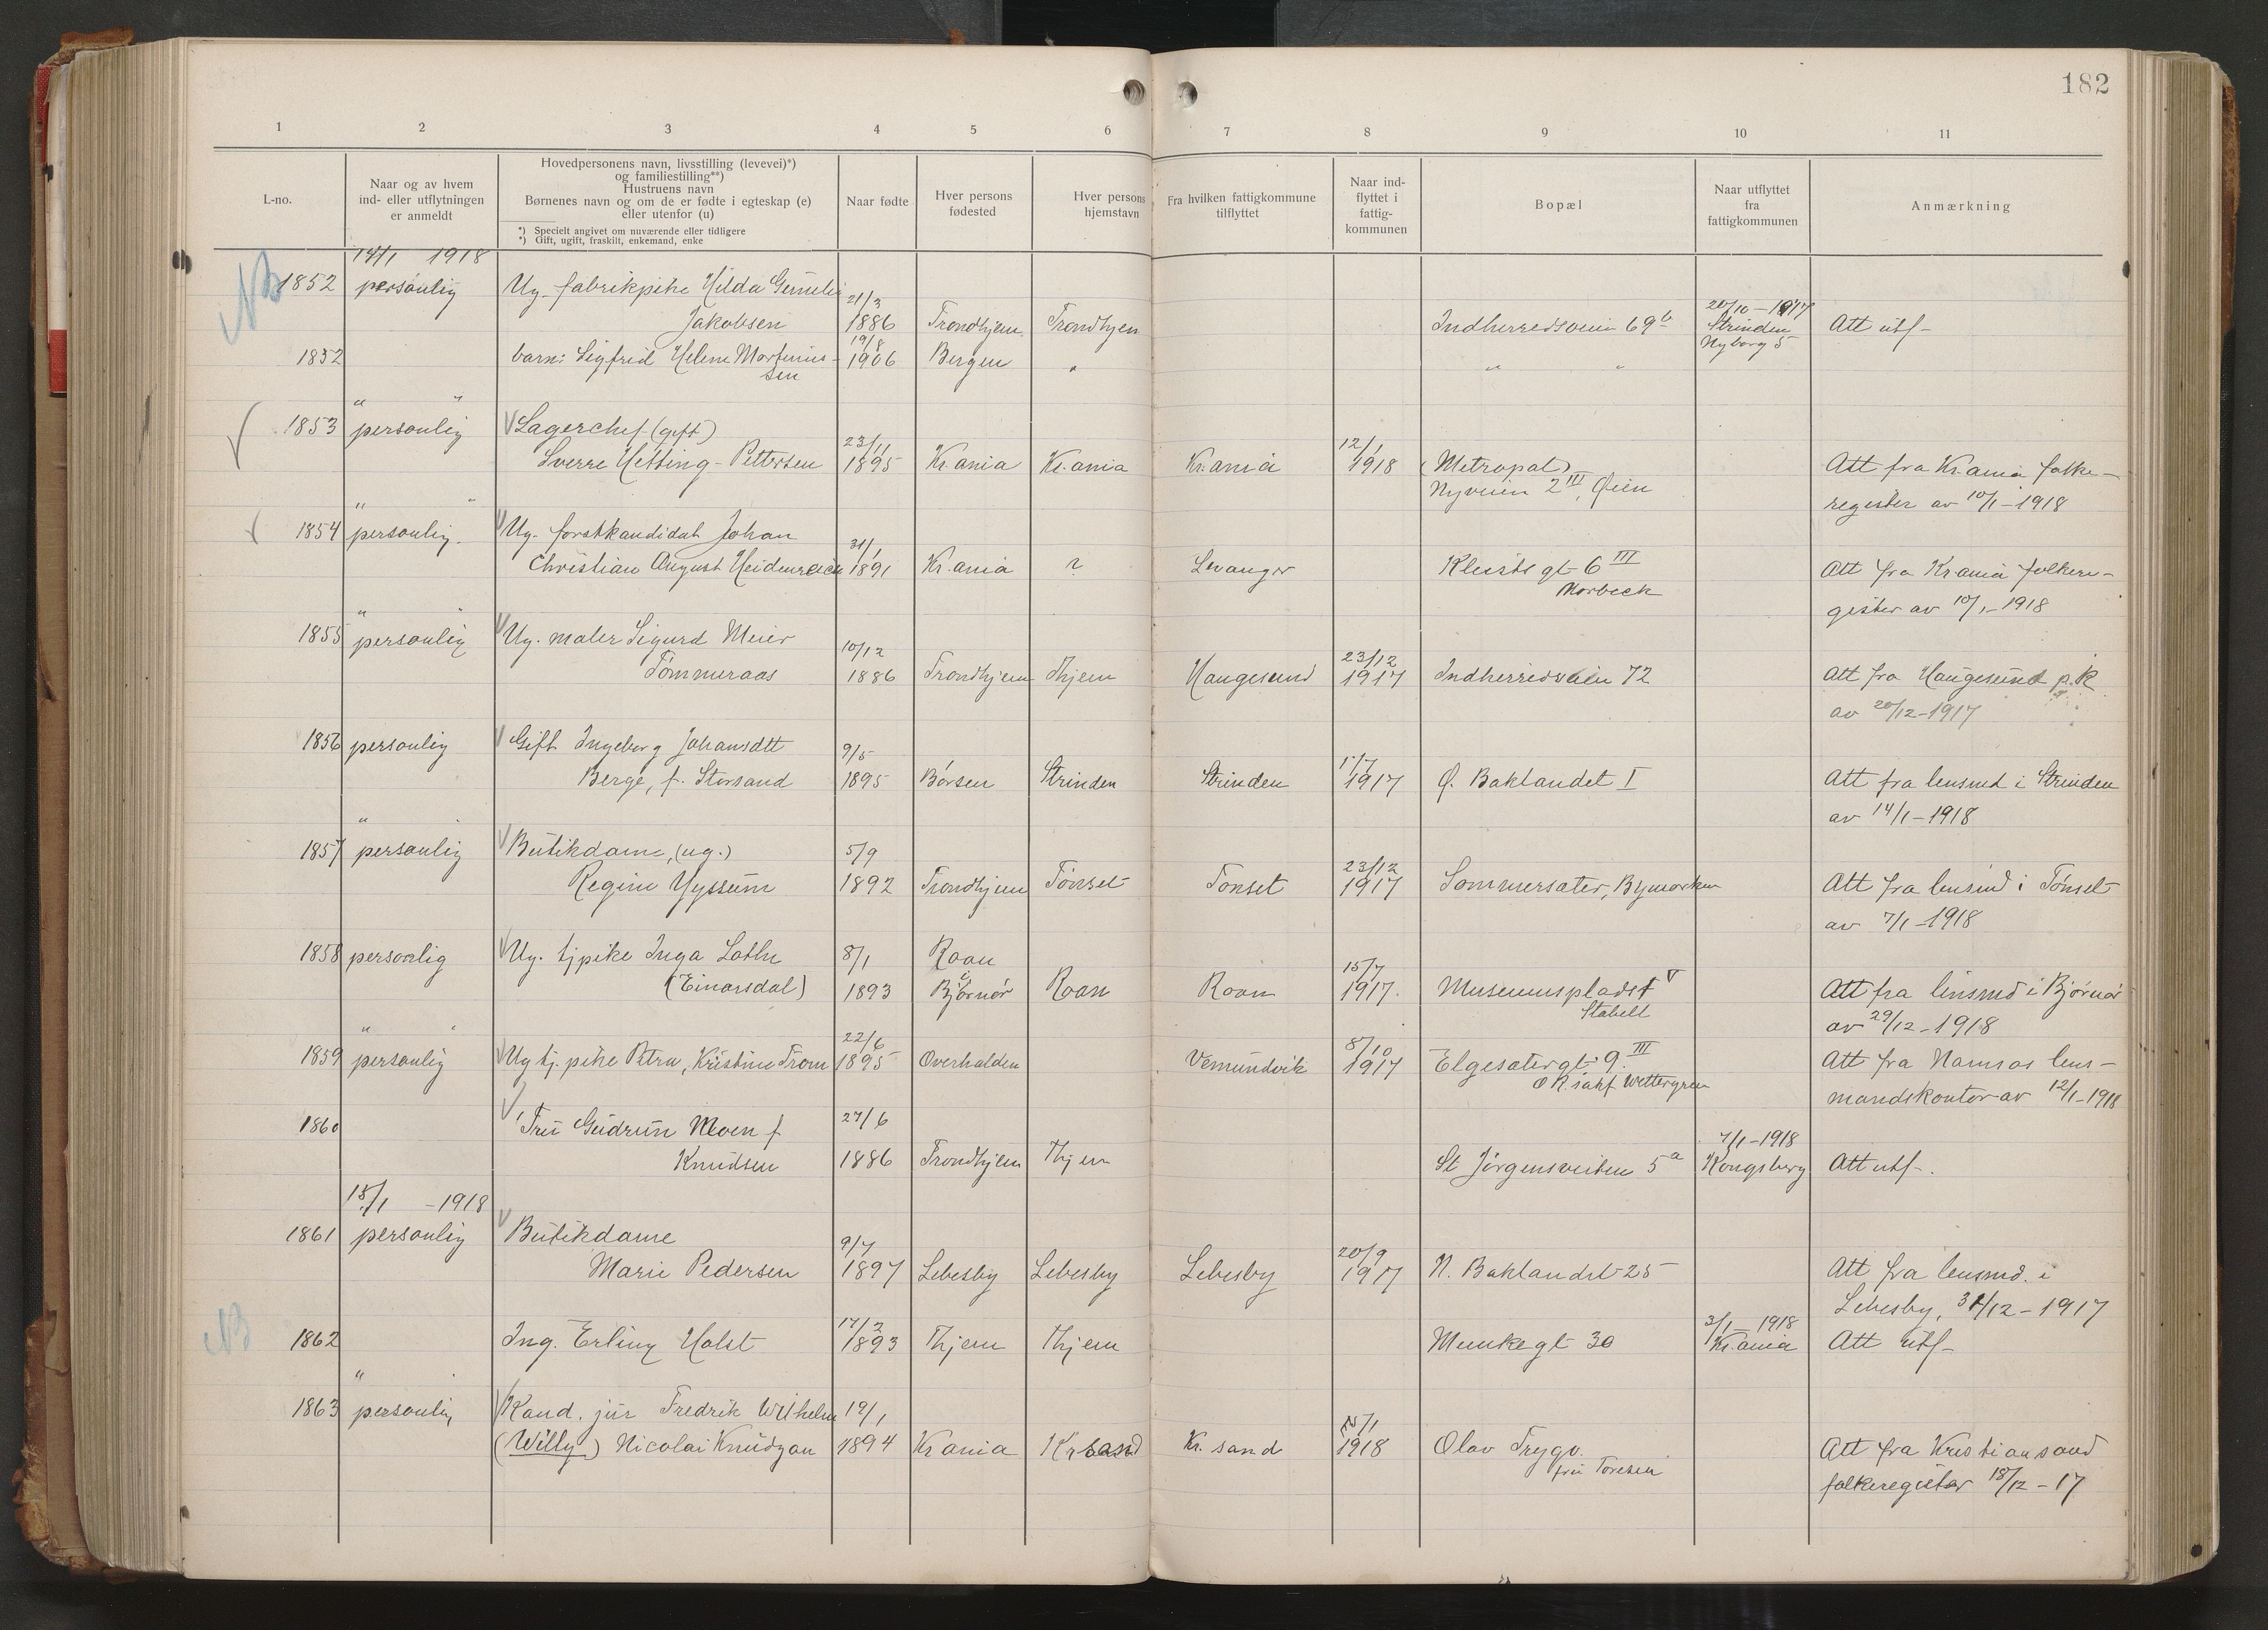 182
1 2 3 4 5 6 7 8 9 10 11
L-no.
Naar og av hvem
ind- eller utflytningen
er anmeldt
Hovedpersonens navn, livsstilling (levevei)*)
og familiestilling**)
Hustruens navn
Børnenes navn og om de er fødte i egteskap (e)
eller utenfor (u)
*) Specielt angivet om nuværende eller tidligere
*) Gift, ugift, fraskilt, enkemand, enke
Naar fødte
Hver persons
fødested
Hver persons
hjemstavn
Fra hvilken fattigkommune
tilflyttet
Naar ind-
flyttet i
fattig-
kommunen
Bopæl
Naar utflyttet
fra
fattigkommunen
Anmærkning
14/1 1918
NB 1852 personlig Ug. fabrikpike Hilda
Jakobsen 21/3 1886 Trondhjem Trondhjem Indherredsveien 69b 20/10-1917 Strinden Nyborg 5 Att utf-
1852 barn: Sigfrid Helene Martinius-
sen 19/8 1906 Bergen " " "
" "
1853 personlig Lagerchef (gift)
Sverre Hetting-Pettersen 23/11 1895 Kr.ania Kr.ania Kr.ania 12/1 1918 (Metropol) Att fra Kr.ania folke-
Nyveien 2 III, Øien register av 10/1-1918
" "
1854 personlig. Ug. forstkandidat Johan
Christian August Heidenreich 31/1 1891 Kr.ania ? Levanger Kleists gt 6 III Att fra Kr.ania folkere-
Morbeck gister av 10/1-1918
" "
1855 personlig Ug. maler Sigurd Meier
Tømmeraas 10/12 1886 Trondhjem Thjem Haugesund 23/12 1917 Indherredsveien 72 Att fra Haugesund p.k
av 20/12-1917
1856 personlig Gift Ingeborg Johansdtt
Berge, f. Storsand 9/5 1895 Børsen Strinden Strinden 1/7 1917 Ø. Baklandet I Att fra lensmd i Strinden
av 14/1-1918
"
1857 personlig Butikdame, (ug.)
Regine Hyssum 5/9 1892 Trondhjem Tønset Tønset 23/12 1917 Sommersæter, Bymarken Att fra lensmd i Tønset
av 7/1-1918
1858 personlig Ug. tjpike Inga Lothe 8/1 Roan
(Einarsdal) 1893 Bjørnør Roan Roan 15/7 1917. Museumsplads V Att fra lensmd i Bjørnør
Stabell av 29/12-1918
" "
1859 personlig Ug tj. pike Petra, Kristine From 22/6 1895 Overhalden Vemundvik 8/10 1917 Elgesætergt. 9 III Att fra Namsos lens-
Wettergreen mandskontor av 12/1-1918
1860 Fru Gudrun Moen f
Knudsen 27/6 1886 Trondhjem Thjem St Jörgensveiten 5a 7/1-1918 Kongsberg Att utf-.
15/1 -1918
1861 personlig Butikdame
Marie Pedersen 9/7 1897 Lebesby Lebesby Lebesby 20/9 1917 N. Baklandet 25 Att fra lensmd. i
Lebesby, 31/12-1917
NB 1862 Ing. Erling Holst 17/2 1893 Thjem Thjem Munkegt 30 3/1 1918 Kr.ania Att utf-
"
1863 personlig Kand. jur Fredrik Wilhelm 19/1
(Willy) Nicolai Knudzon 1894 Kr ania Kr.sand Kr. sand 1918 Olav Trygv. Att fra Kristiansand
fru Toresen folkeregister 18/12-17